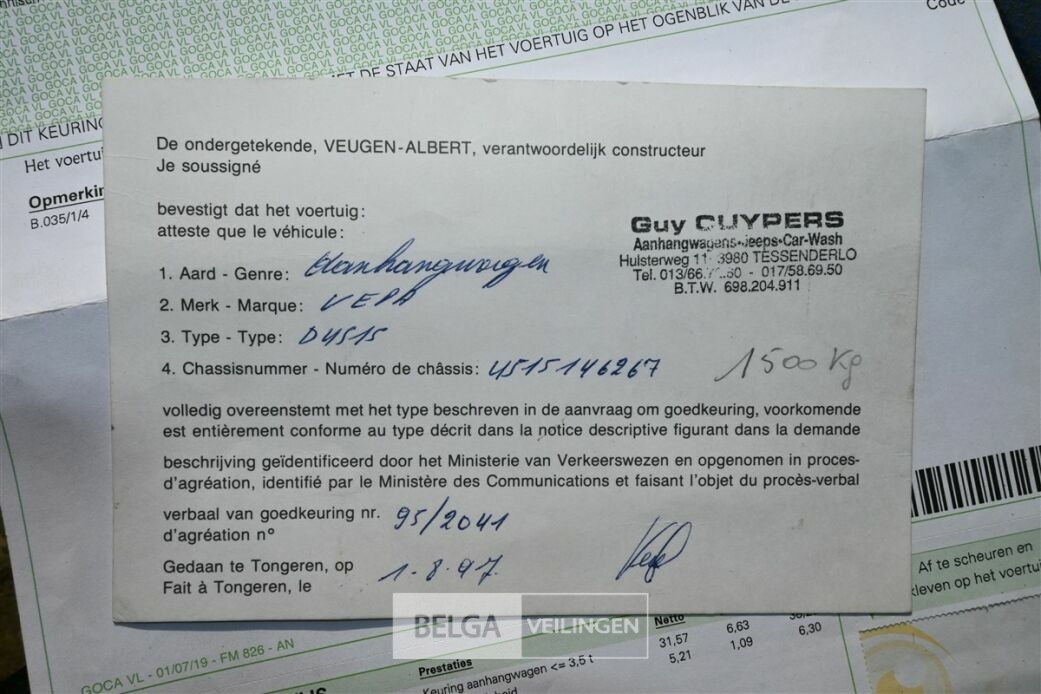 GOCA VL GOCA VL GOCA VL GOCA VL
Code
MET DE STAAT VAN HET VOERTUIG OP HET OGENBLIK VAN DE
DIT KEURING
Het voertui
Opmerkin
B.035/1/4
De ondergetekende, VEUGEN-ALBERT, verantwoordelijk constructeur
Je soussigné
bevestigt dat het voertuig:
atteste que le véhicule:
Guy CUYPERS
Aanhangwagens•Jeeps•Car-Wash
Hulsterweg 11 3980 TESSENDERLO
Tel. 013/66. .50 - 017/58.69.50
B.T.W. 698.204.911
1. Aard - Genre: Aanhangwagen
2. Merk - Marque: VEPA
3. Type - Type: D4515
4. Chassisnummer - Numéro de châssis: 4515146267
1500 Kg
volledig overeenstemt met het type beschreven in de aanvraag om goedkeuring, voorkomende
est entièrement conforme au type décrit dans la notice descriptive figurant dans la demande
beschrijving geïdentificeerd door het Ministerie van Verkeerswezen en opgenomen in proces-
d'agréation, identifié par le Ministère des Communications et faisant l'objet du procès-verbal
verbaal van goedkeuring nr. 95/2041
d'agréation n°
Gedaan te Tongeren, op 1.8.97
Fait à Tongeren, le
Af te scheuren en
kleven op het voertui
BELGA VEILINGEN
GOCA VL - 01/07/19 - FM 826 - AN
Prestaties
Netto
Keuring aanhangwagen <= 3,5 t
31,57 6,63
5,21 1,09 6,30